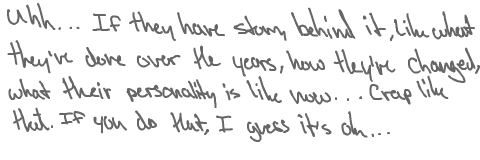 Uhh... If they have story behind it, like what
they've done over the years, how they've changed,
what their personality is like now... Crap like
that. If you do that, I guess it's ok...